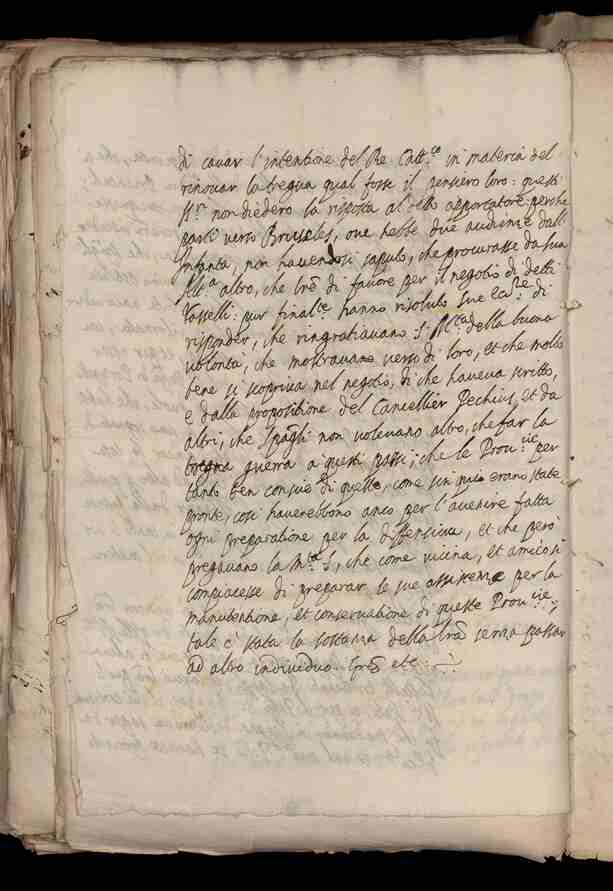 di cavar l'intentione del Re Catt.co in materia del
rinovar la tregua qual fosse il pensiero loro: questi
SS.ri non diedero la risposta al detto apportatore perche
partì verso Bruseles, ove hebbe due audienze dall'
Infanta, non havendosi saputo, che procurasse da sua
Alt.a altro, che lre di favore per il negotio di detti
Vasselli: pur final.te hanno risoluto sue ecc.ze di
risponder, che ringratiavano S. M.tà della buona
volontà, che mostravano verso di loro, et che molto
bene si scopriva nel negotio, di che haveva scritto,
e dalla propositione del Cancellier Pechius, et da
altri, che Spag.li non volevano altro, che far la
guerra a questi paesi; che le Prov.cie per
tanto ben conscie di quello, come sin qui erano state
pronte, così haverebbono anco per l'avenire fatta
ogni preparatione per la diffensiva, et che però
pregavano la M.tà S., che come vicina, et amica si
compiacesse di preparar le sue assistenze per la
manutentione, et conservatione di queste Prov.cie,
tale è stata la sostanza della lra senza passar
ad altro individuo. Gre etc.